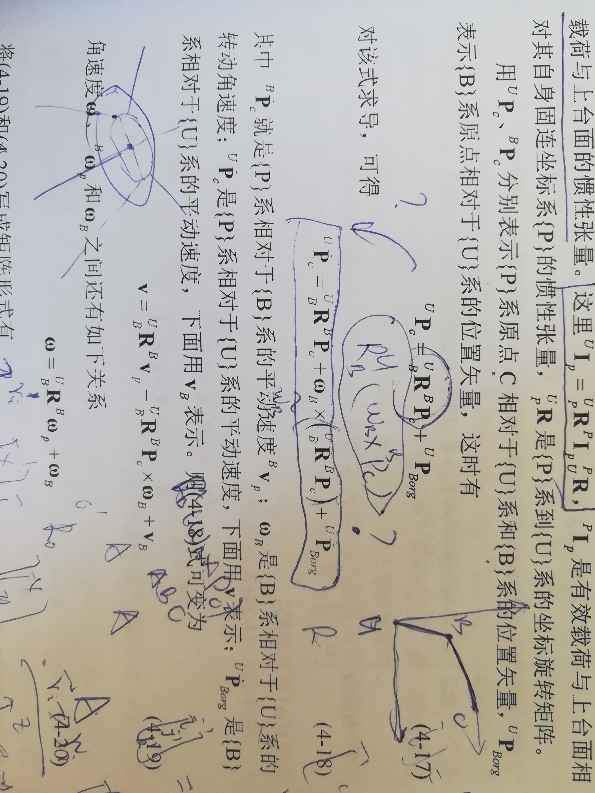 载荷与上台面的惯性张量。这里 ᵁI_p = ᵁ_pR ᴾI_p ᴾ_UR，ᴾI_p 是有效载荷与上台面相
对其自身固连坐标系{P}的惯性张量，ᵁ_pR 是{P}系到{U}系的坐标旋转矩阵。
用 ᵁP_c、ᴮP_c 分别表示{P}系原点 C 相对于{U}系和{B}系的位置矢量，ᵁP_Borg
表示{B}系原点相对于{U}系的位置矢量，这时有
ᵁP_c = ᵁ_BR ᴮP_c + ᵁP_Borg (4-17)
对该式求导，可得
?
ᵁṖ_c = ᵁ_BR ᴮṖ_c + ω_B × (ᵁ_BR ᴮP_c) + ᵁṖ_Borg (4-18)
?
其中 ᴮṖ_c 就是{P}系相对于{B}系的平动速度 ᴮv_p；ω_B 是{B}系相对于{U}系的
转动角速度；ᵁṖ_c 是{P}系相对于{U}系的平动速度，下面用 v 表示；ᵁṖ_Borg 是{B}
系相对于{U}系的平动速度，下面用 v_B 表示。则(4-18)式可变为
v = ᵁ_BR ᴮv_p − ᵁ_BR ᴮP_c × ω_B + v_B (4-19)
角速度 ω、ᴮω_p 和 ω_B 之间还有如下关系
ω = ᵁ_BR ᴮω_p + ω_B (4-20)
将(4-19)和(4-20)写成矩阵形式有